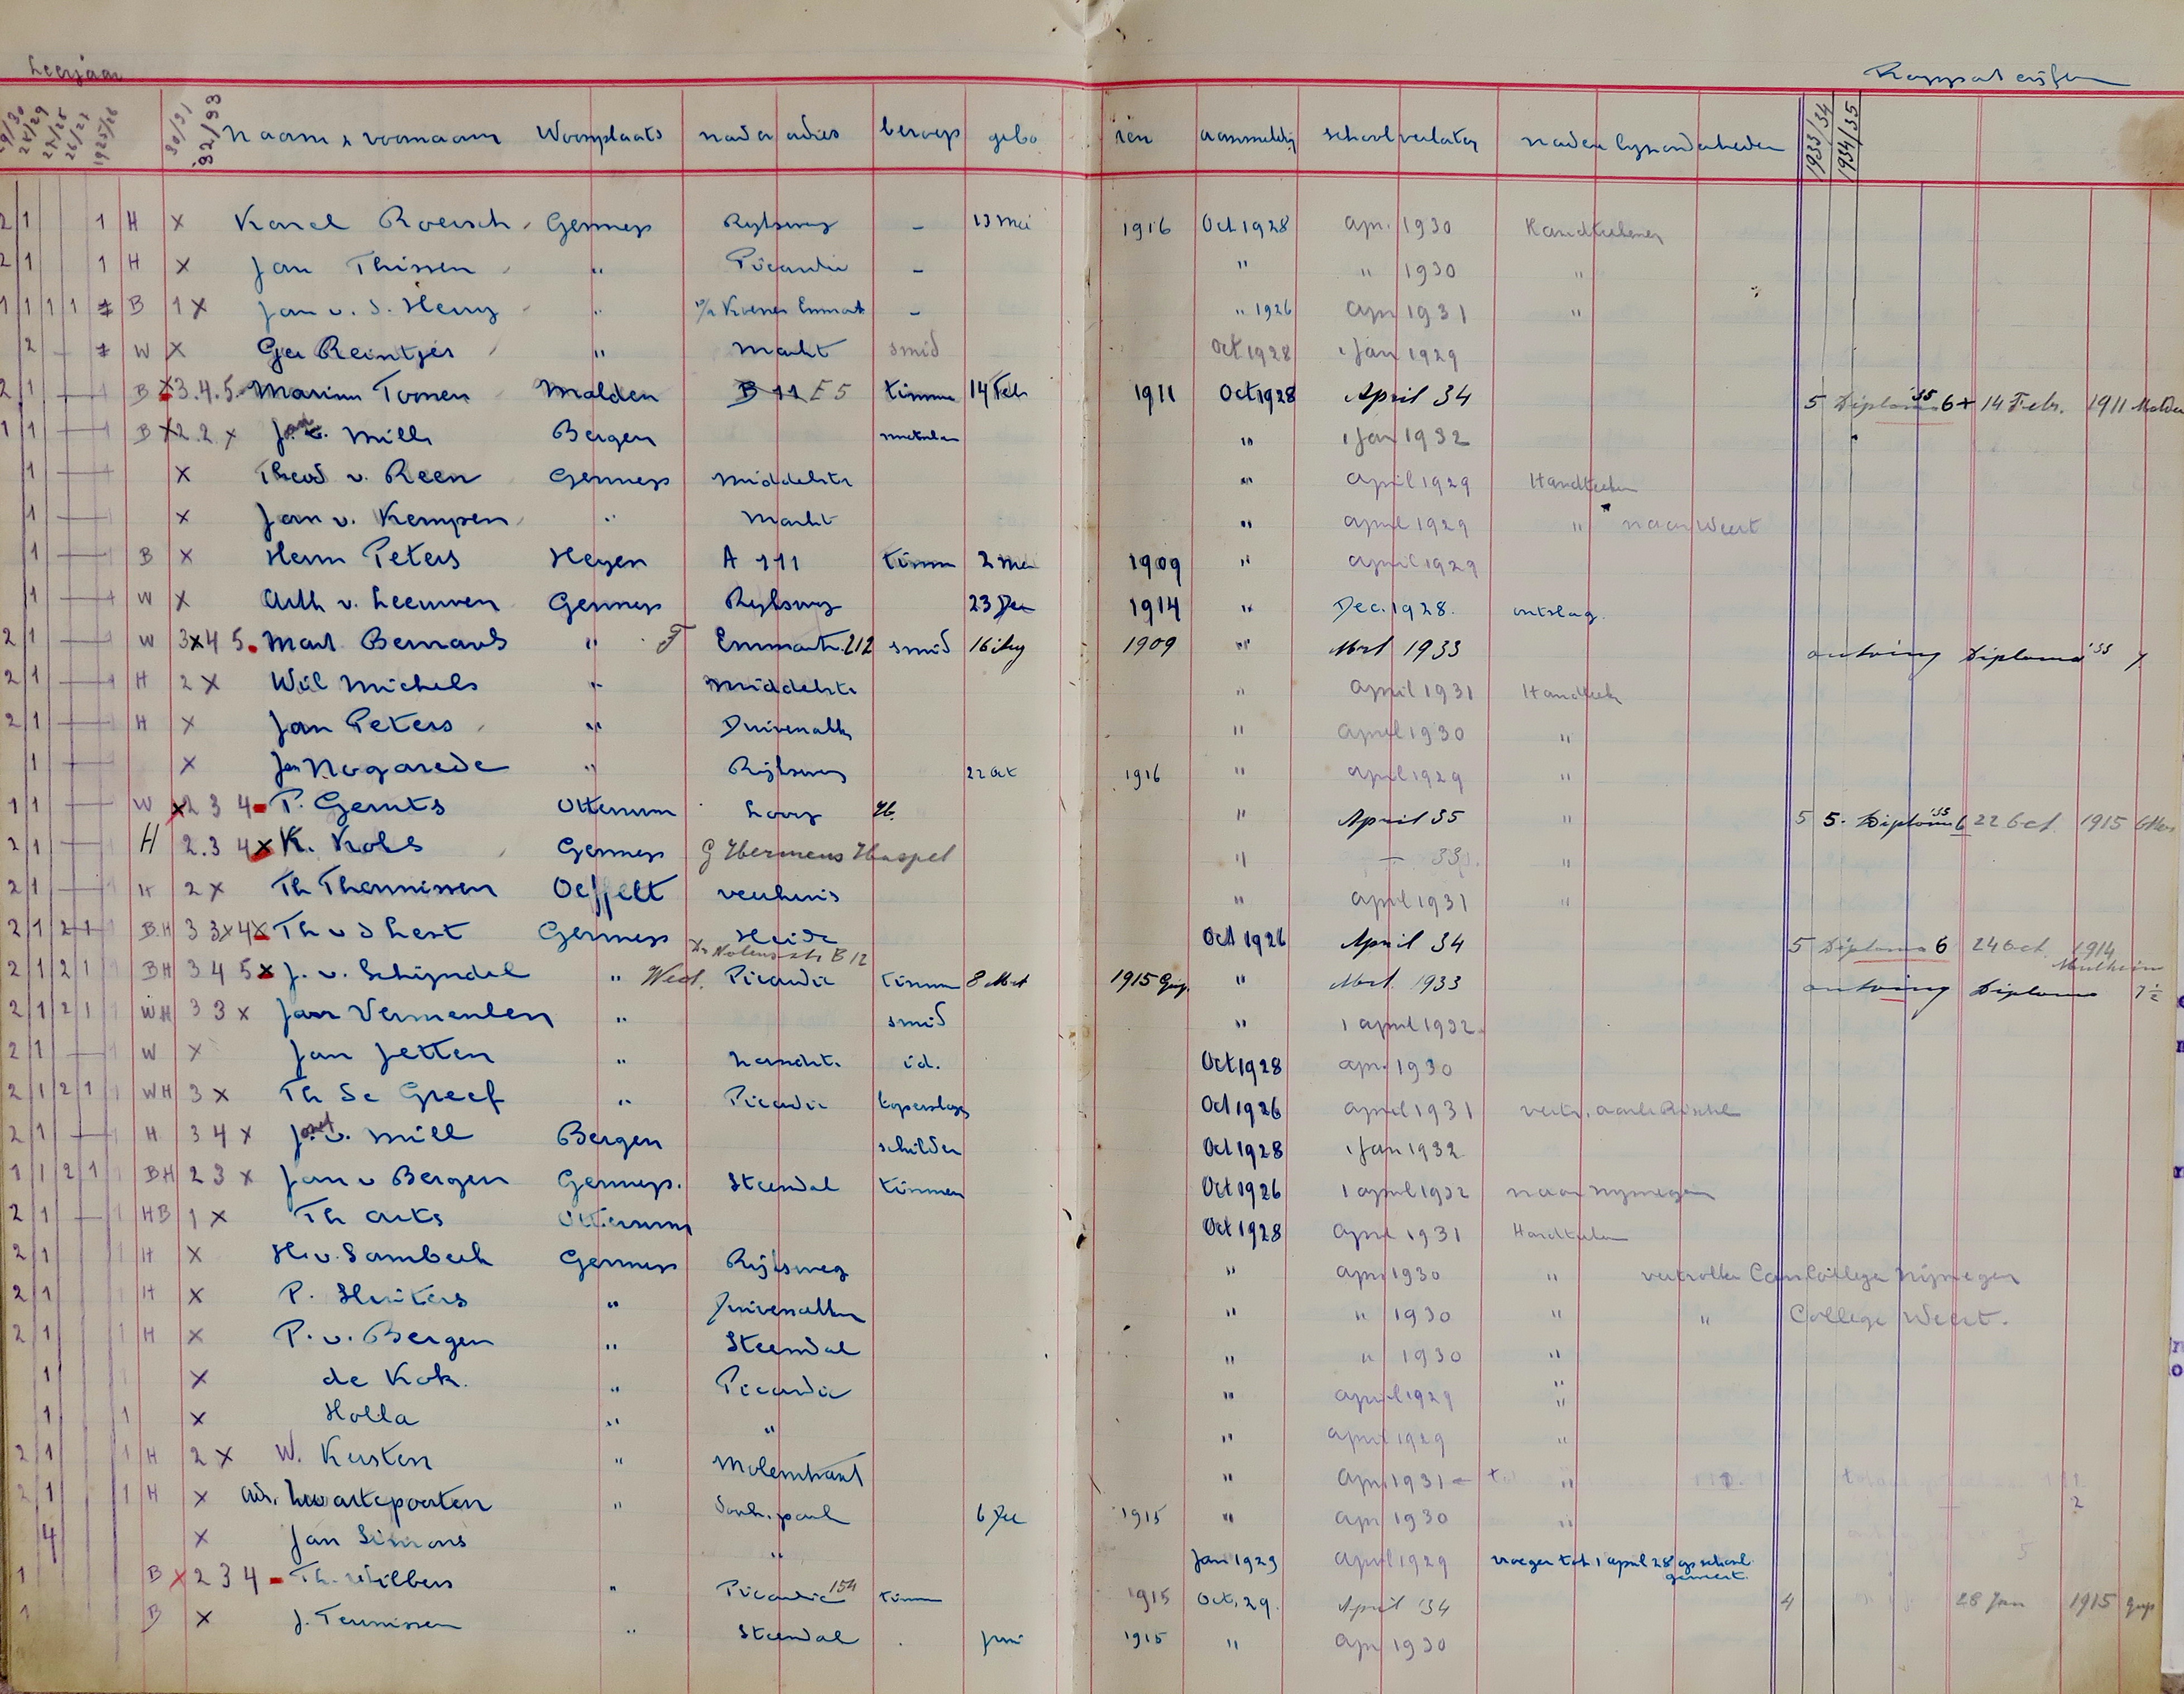 Leerjaar
29/30 28/29 27/28 26/27 1925/26 30/31 32/33 naam & voornaam Woonplaats nader adres beroep gebo ren aanmeldg schoolverlatg nadere byzonderheden 1933/34 1934/35
2 1 1 H x Karel Roersch Gennep Rijksweg - 13 Mei 1916 Oct 1928 apr. 1930 Handteekenen
2 1 1 H x Jan Thissen " Picardie - " " 1930 "
1 1 1 1 B 1 x Jan v. d. Heuy " - " 1926 apr 1931 "
2 W x Ger Reintjes " Markt smid Oct 1928 1 Jan 1929
2 1 B x 3.4.5. Marinus Toonen Malden B 11 E 5 timm 14 Feb 1911 Oct 1928 April 34 5 Diploma '35 6+ 14 Febr. 1911 Malden
1 1 B x 2.2 x Jan v. Mill Bergen " 1 Jan 1932
1 x Theod v. Reen Gennep Middelstr " april 1929 Handteeken
1 x Jan v. Kempen " Markt " april 1929 " naar Weert
1 B x Herm Peters Heyen A 111 timm 2 Mei 1909 " april 1929
1 W x Arth v. Leeuwen Gennep Rijksweg 23 Dec 1914 " Dec. 1928. ontslag.
2 1 W 3 x 4 5. Mart Bernards " F Emmastr. 212 smid 16 Aug 1909 " Mrt 1933 ontving Diploma '33 7
2 1 H 2 x Wil Michels " Middelstr " april 1931 Handteek
2 1 H x Jan Peters " Duivenakk " april 1930 "
1 x Jan Nogarede " Rijksweg 22 Oct 1916 " april 1929 "
1 1 W x 2 3 4 - P. Gerrits Ottersum Looy " April 35 " 5 5. Diploma '35 6 22 Oct. 1915
2 1 H 2.3 4 x K. Kols Gennep G Hermens Haspel " - 33. "
2 1 H 2 x Th Theunissen Oeffelt veerhuis " april 1931 "
2 1 2 1 B.H 3 3 x 4 x Th v d Lest Gennep Heide Oct 1926 April 34 5 Diploma 6 24 Oct. 1914
Dr Nolensstr B 12 Mulheim
2 1 2 1 BH 3 4 5 x J. v. Schijndel " Wed. Picardie timm 8 Mrt 1915 Gnp. " Mrt. 1933 ontving Diploma 7½
2 1 2 1 WH 3 3 x Jan Vermeulen " smid " 1 april 1932
2 1 W x Jan Jetten " id. Oct 1928 apr. 1930
2 1 2 1 WH 3 x Th de Greef " Picardie koperslager Oct 1926 april 1931
2 1 H 3 4 x J. v. Mill Bergen schilder Oct 1928 1 Jan 1932
1 1 2 1 BH 2 3 x Jan v Bergen Gennep. Steendal timmer Oct 1926 1 april 1932 naar Nymegen
2 1 1 HB 1 x Th Arts Ottersum Oct 1928 april 1931 Handteeken
2 1 1 H x H. v. Sambeek Gennep Rijksweg " apr 1930 " vertrokken Can. College Nijmegen
2 1 1 H x P. Huiters " Duivenakker " " 1930 " " College Weert.
2 1 1 H x P. v. Bergen " Steendal " " 1930 "
1 x de Kok. " Picardie " april 1929 "
1 1 x Holla " " " april 1929 "
2 1 1 H 2 x W. Kersten " Molenstraat " apr. 1931 "
2 1 1 H x Adr. Zwartepoorten " 6 Dec 1915 " apr 1930 " 2
4 x Jan Simons " Jan 1929 april 1929 vroeger tot 1 april 28 op school
geweest.
1 B x 2 3 4 - Th. Wilbers " Picardie 154 timm 1915 Oct. 29. April '34 4 28 Jan 1915 Gnp
1 B x J. Teunissen " Steendal Juni 1915 " apr 1930